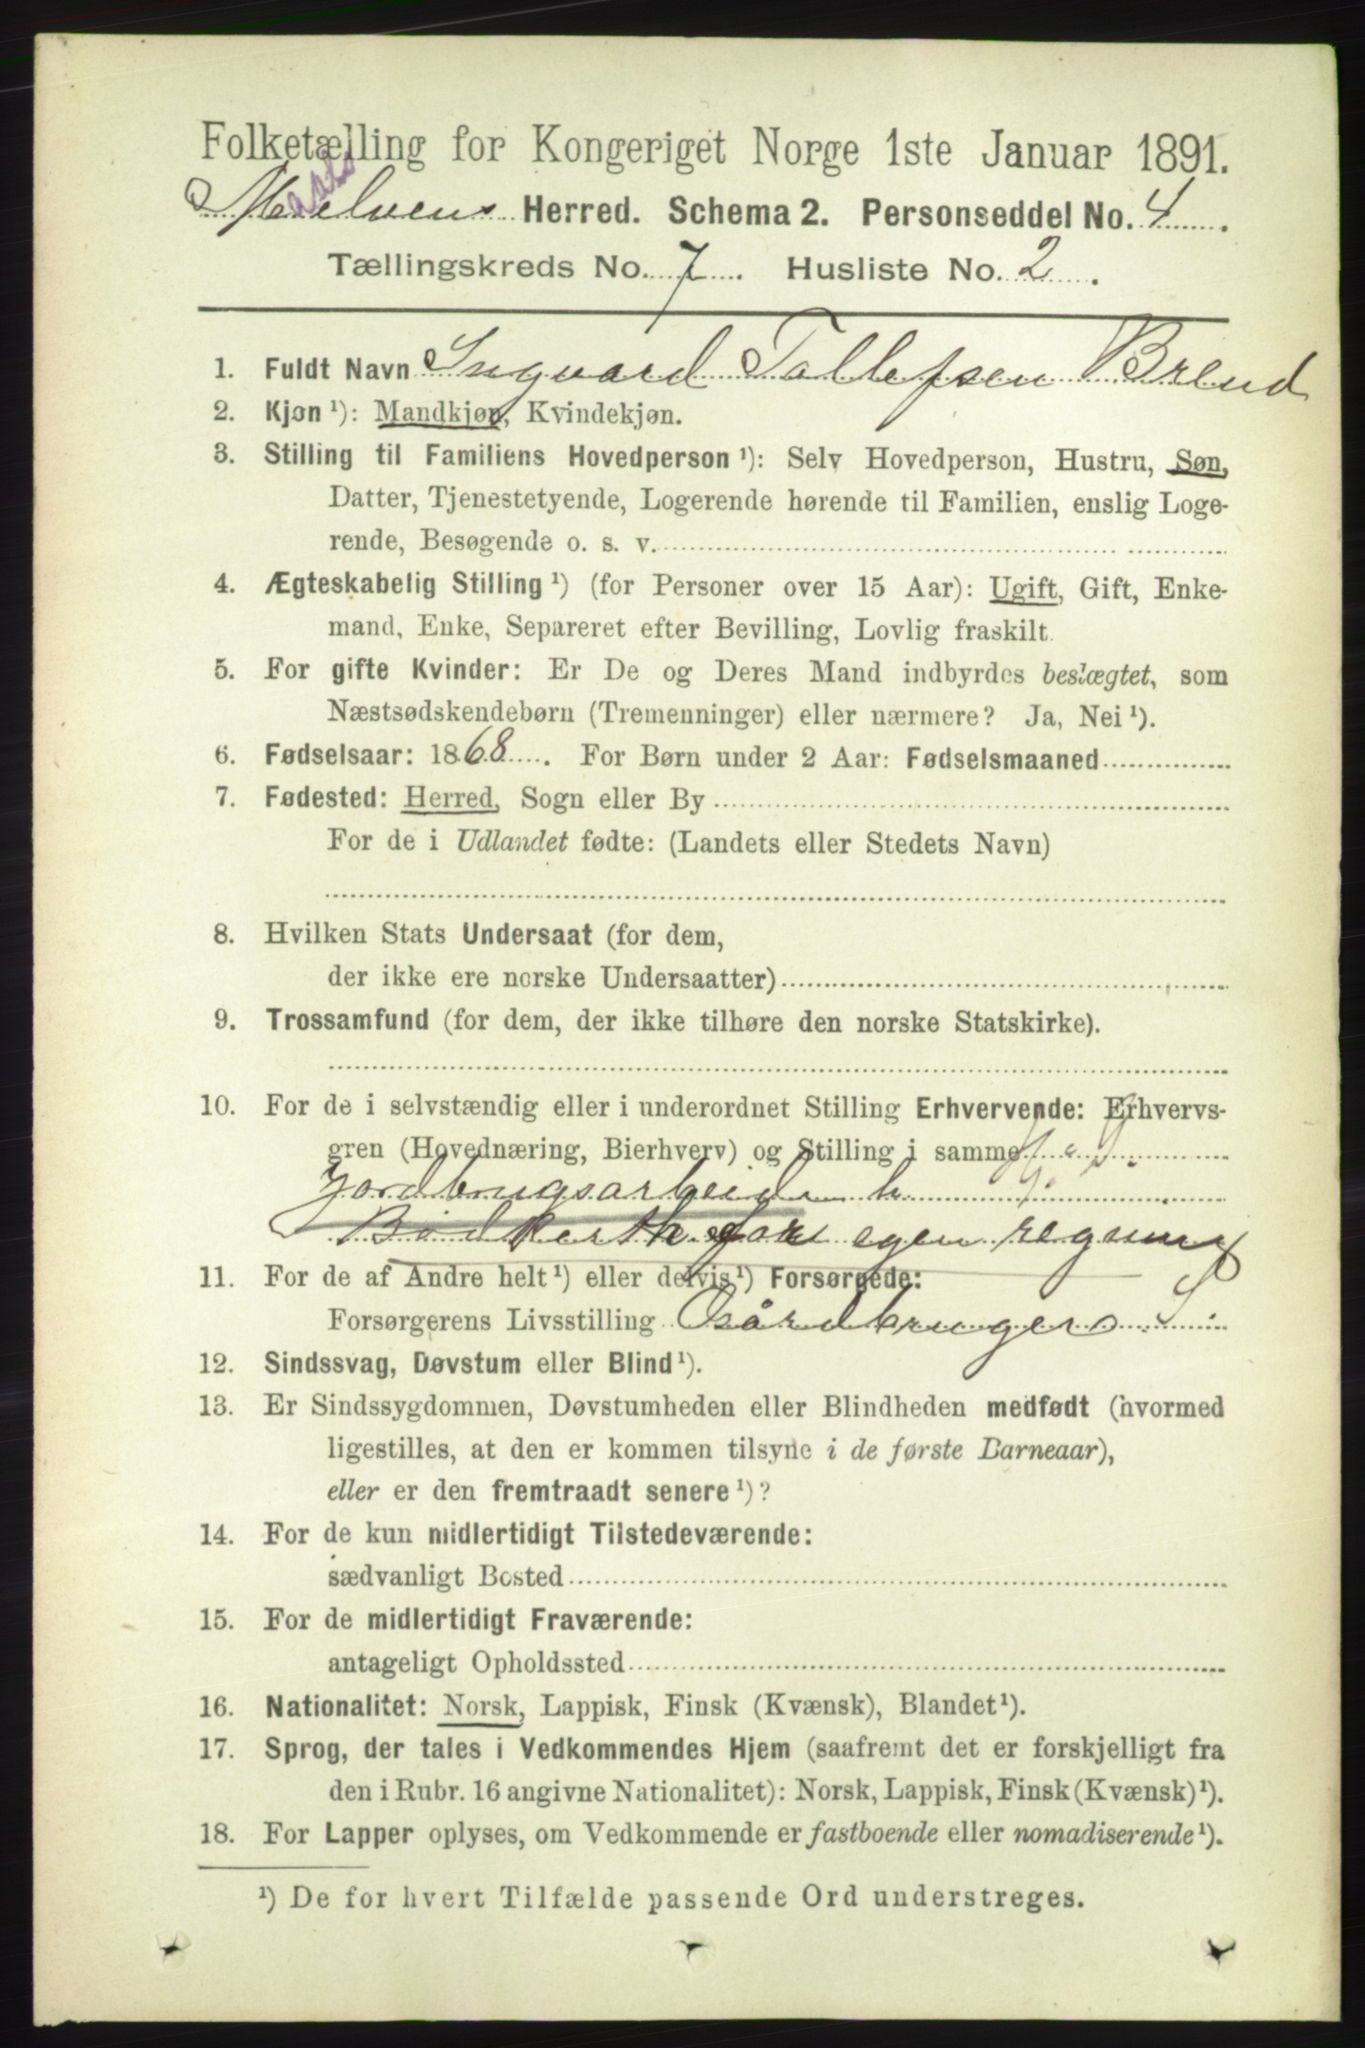 Folketælling for Kongeriget Norge 1ste Januar 1891.
Herred. Schema 2. Personseddel No. 4.
Tællingskreds No. 7. Husliste No. 2.
1. Fuldt Navn Ingvard Tollefsen Brend
2. Kjøn ¹): Mandkjøn, Kvindekjøn.
3. Stilling til Familiens Hovedperson ¹): Selv Hovedperson, Hustru, Søn,
Datter, Tjenestetyende, Logerende hørende til Familien, enslig Loge-
rende, Besøgende o. s. v.
4. Ægteskabelig Stilling ¹) (for Personer over 15 Aar): Ugift, Gift, Enke-
mand, Enke, Separeret efter Bevilling, Lovlig fraskilt.
5. For gifte Kvinder: Er De og Deres Mand indbyrdes beslægtet, som
Næstsødskendebørn (Tremenninger) eller nærmere? Ja, Nei ¹).
6. Fødselsaar: 1868. For Børn under 2 Aar: Fødselsmaaned
7. Fødested: Herred, Sogn eller By
For de i Udlandet fødte: (Landets eller Stedets Navn)
8. Hvilken Stats Undersaat (for dem,
der ikke ere norske Undersaatter)
9. Trossamfund (for dem, der ikke tilhøre den norske Statskirke).
10. For de i selvstændig eller i underordnet Stilling Erhvervende: Erhvervs-
gren (Hovednæring, Bierhverv) og Stilling i samme
Jordbrugsarbeide
egen regning
11. For de af Andre helt ¹) eller delvis ¹) Forsørgede:
Forsørgerens Livsstilling Gårdbruger S.
12. Sindssvag, Døvstum eller Blind ¹).
13. Er Sindssygdommen, Døvstumheden eller Blindheden medfødt (hvormed
ligestilles, at den er kommen tilsyne i de første Barneaar),
eller er den fremtraadt senere ¹)?
14. For de kun midlertidigt Tilstedeværende:
sædvanligt Bosted
15. For de midlertidigt Fraværende:
antageligt Opholdssted
16. Nationalitet: Norsk, Lappisk, Finsk (Kvænsk), Blandet ¹).
17. Sprog, der tales i Vedkommendes Hjem (saafremt det er forskjelligt fra
den i Rubr. 16 angivne Nationalitet): Norsk, Lappisk, Finsk (Kvænsk) ¹).
18. For Lapper oplyses, om Vedkommende er fastboende eller nomadiserende ¹).
¹) De for hvert Tilfælde passende Ord understreges.